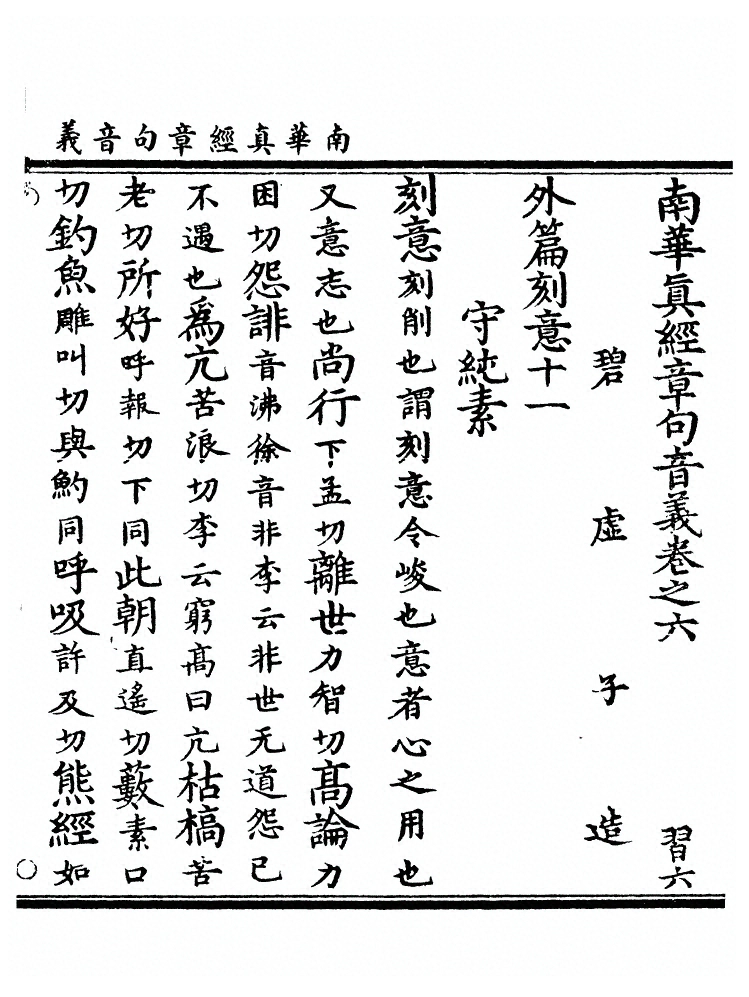 南華真經章句音義
南華眞經章句音義卷之六 習六
碧虛子造
外篇刻意十一
守純素
刻意刻削也謂刻意令峻也意者心之用也
又意志也尚行下孟切離世力智切高論力
困切怨誹音沸徐音非李云非世无道怨已
不遇也爲亢苦浪切李云窮高曰亢枯槁苦
老切所好呼報切下同此朝直遙切藪素口
切釣魚雕叫切與魡同呼吸許及切熊經如